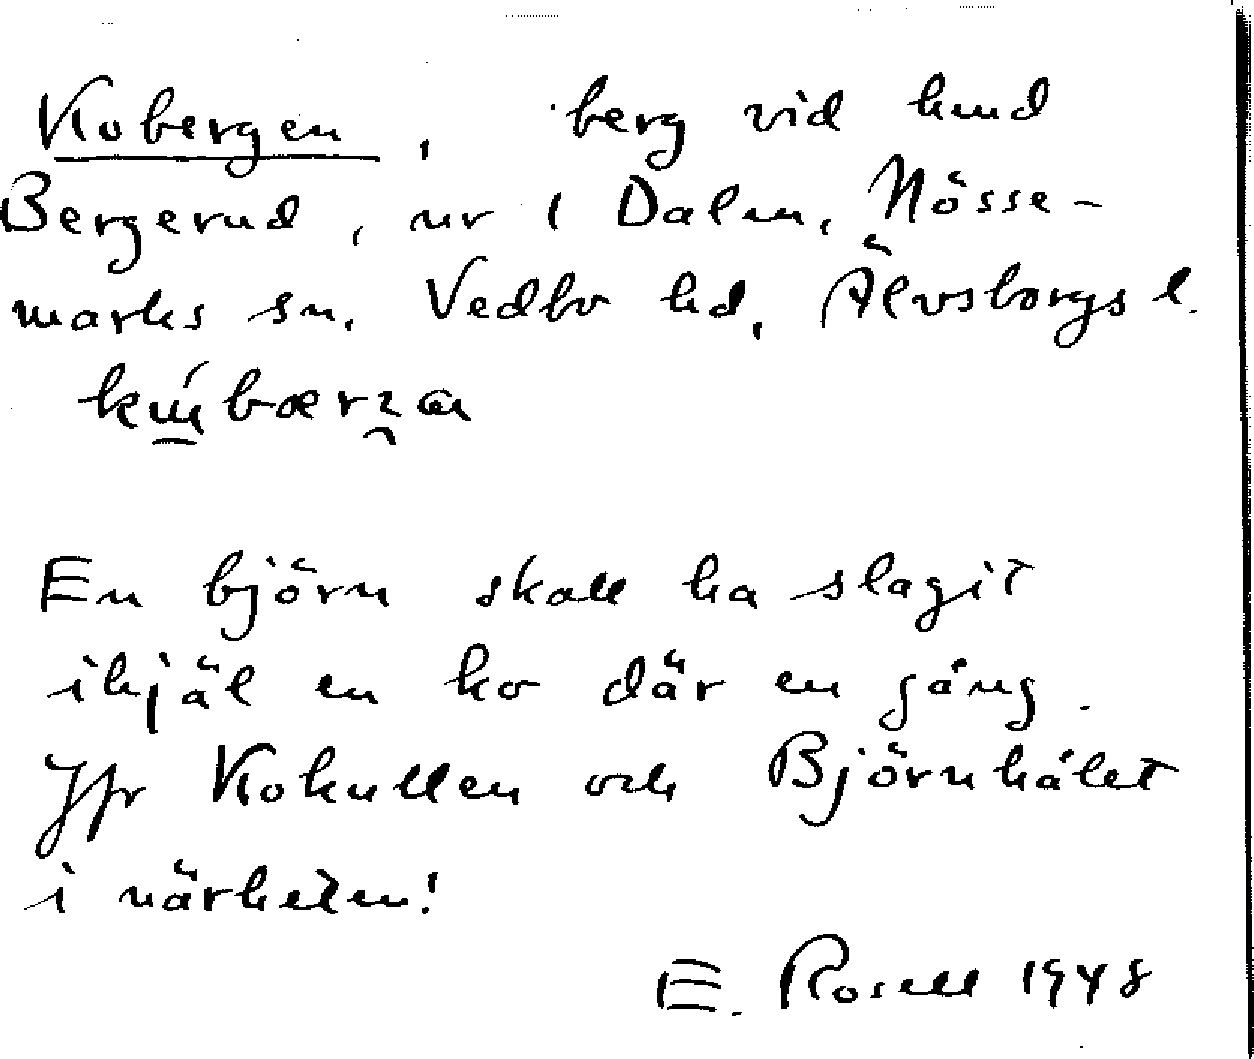 Kobergen, berg vid hmd
Bergerud, nr 1 Dalen, Nösse-
marks sn, Vedbo hd, Älvsborgs l.
En björn skall ha slagit
ihjäl en ko där en gång.
Jfr Kokullen och Björnhålet
i närheten!
E. Rosell 1948